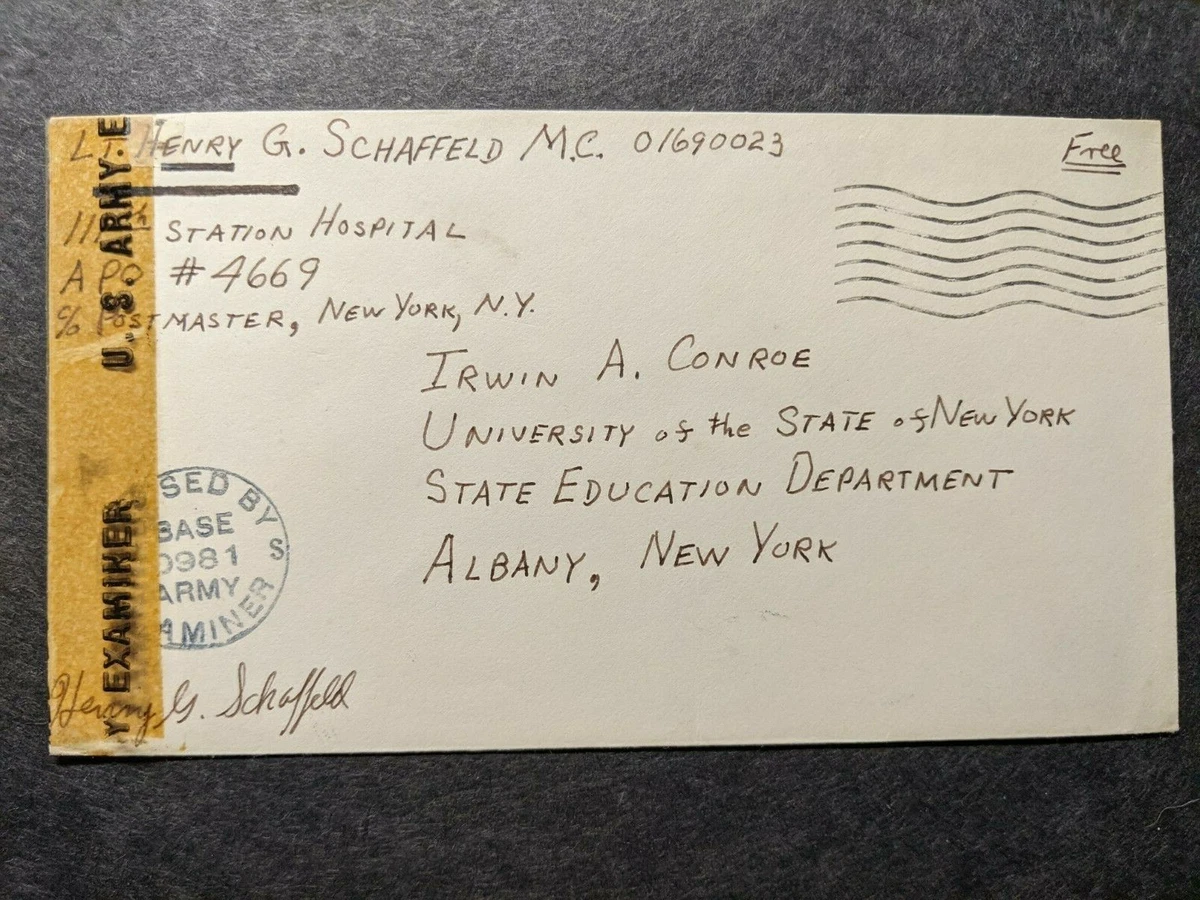 Lt. HENRY G. SCHAFFELD M.C. 01690023
Free
STATION HOSPITAL
APO #4669
% POSTMASTER, NEW YORK, N.Y.
IRWIN A. CONROE
UNIVERSITY of the STATE of NEW YORK
STATE EDUCATION DEPARTMENT
ALBANY, NEW YORK
U.S. ARMY. E
Y EXAMINER
SED BY
BASE
0981
ARMY
S
AMINER
Henry G. Schaffeld